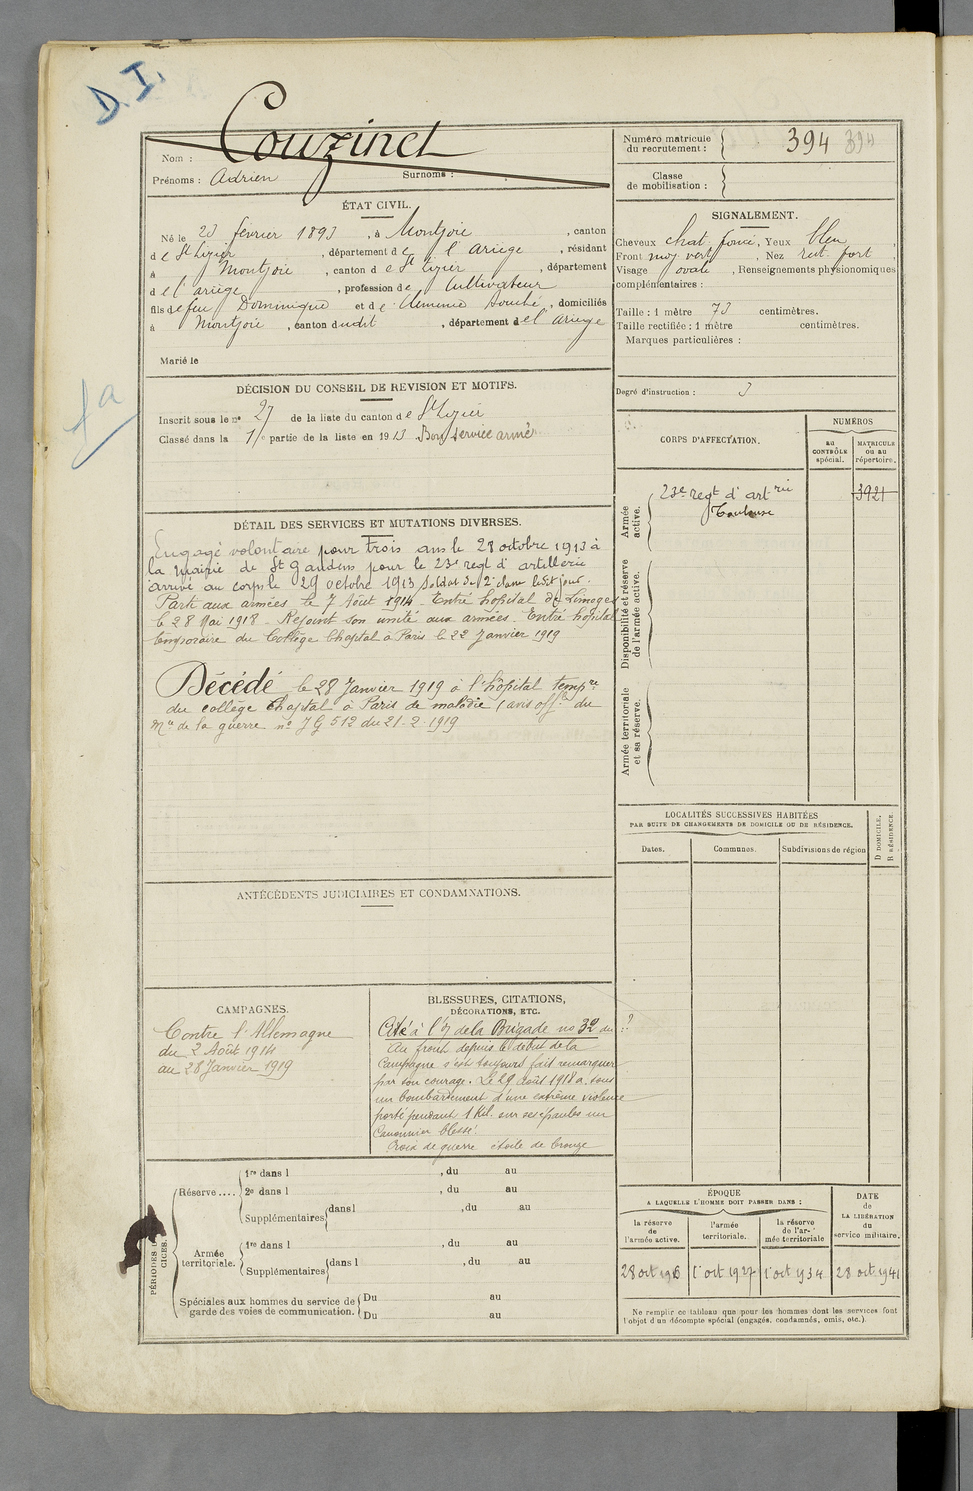 D. I.
Nom : Couzinet
Prénoms : Adrien Surnoms :
Numéro matricule du recrutement : 394 394
Classe de mobilisation :
ÉTAT CIVIL.
Né le 23 février 1893, à Montjoie, canton
de St Lizier, département de l'Ariège, résidant
à Montjoie, canton de St Lizier, département
de l'ariège, profession de Cultivateur
fils de feu Dominique et de Clemence Souché, domiciliés
à Montjoie, canton dudit, département de l'ariège
Marié le
SIGNALEMENT.
Cheveux chat. foncé, Yeux bleu,
Front moy vert, Nez rect. fort,
Visage ovale, Renseignements physionomiques
complémentaires :
Taille : 1 mètre 73 centimètres.
Taille rectifiée : 1 mètre centimètres.
Marques particulières :
Degré d'instruction : 3
DÉCISION DU CONSEIL DE REVISION ET MOTIFS.
Inscrit sous le no 27 de la liste du canton de St Lizier
Classé dans la 1re partie de la liste en 1913 Bon service armé
CORPS D'AFFECTATION.
NUMÉROS
au CONTRÔLE spécial.
MATRICULE ou au répertoire.
Armée active.
23e regt d'artrie 3921
Toulouse
Disponibilité et réserve de l'armée active.
Armée territoriale et sa réserve.
DÉTAIL DES SERVICES ET MUTATIONS DIVERSES.
Engagé volontaire pour trois ans le 28 octobre 1913 à
la mairie de St Gaudens pour le 23e regt d'artillerie
arrivé au corps le 29 octobre 1913 soldat de 2e classe ledit jour.
Parti aux armées le 7 Août 1914 - Entré hôpital de Limoges
le 28 Mai 1918 - Rejoint son unité aux armées. Entré hôpital
temporaire du Collège Chaptal à Paris le 22 Janvier 1919
Décédé le 28 Janvier 1919 à l'hôpital tempre
du collège Chaptal à Paris de maladie (avis offel du
Mre de la guerre no JG 512 du 21-2-1919
LOCALITÉS SUCCESSIVES HABITÉES
PAR SUITE DE CHANGEMENTS DE DOMICILE OU DE RÉSIDENCE.
Dates. Communes. Subdivisions de région D DOMICILE. R RÉSIDENCE.
ANTÉCÉDENTS JUDICIAIRES ET CONDAMNATIONS.
CAMPAGNES.
Contre l'Allemagne
du 2 Août 1914
au 28 Janvier 1919
BLESSURES, CITATIONS,
DÉCORATIONS, ETC.
Cité à l'o/ de la Brigade no 32 du ??
Au front depuis le début de la
Campagne s'est toujours fait remarquer
par son courage. Le 29 août 1918 a sous
un bombardement d'une extrême violence
porté pendant 1 Kil. sur ses épaules un
Canonnier blessé.
Croix de guerre étoile de bronze
PÉRIODES D CICES.
Réserve....
1re dans l , du au
2e dans l , du au
Supplémentaires dans l , du au
Armée territoriale.
1re dans l , du au
Supplémentaires dans l , du au
Spéciales aux hommes du service de garde des voies de communication.
Du au
Du au
ÉPOQUE
A LAQUELLE L'HOMME DOIT PASSER DANS :
la réserve de l'armée active.
l'armée territoriale.
la réserve de l'armée territoriale
DATE de LA LIBÉRATION du service militaire.
28 oct 1916 1er oct 1927 1er oct 1934 28 oct 1941
Ne remplir ce tableau que pour les hommes dont les services font
l'objet d'un décompte spécial (engagés, condamnés, omis, etc.).